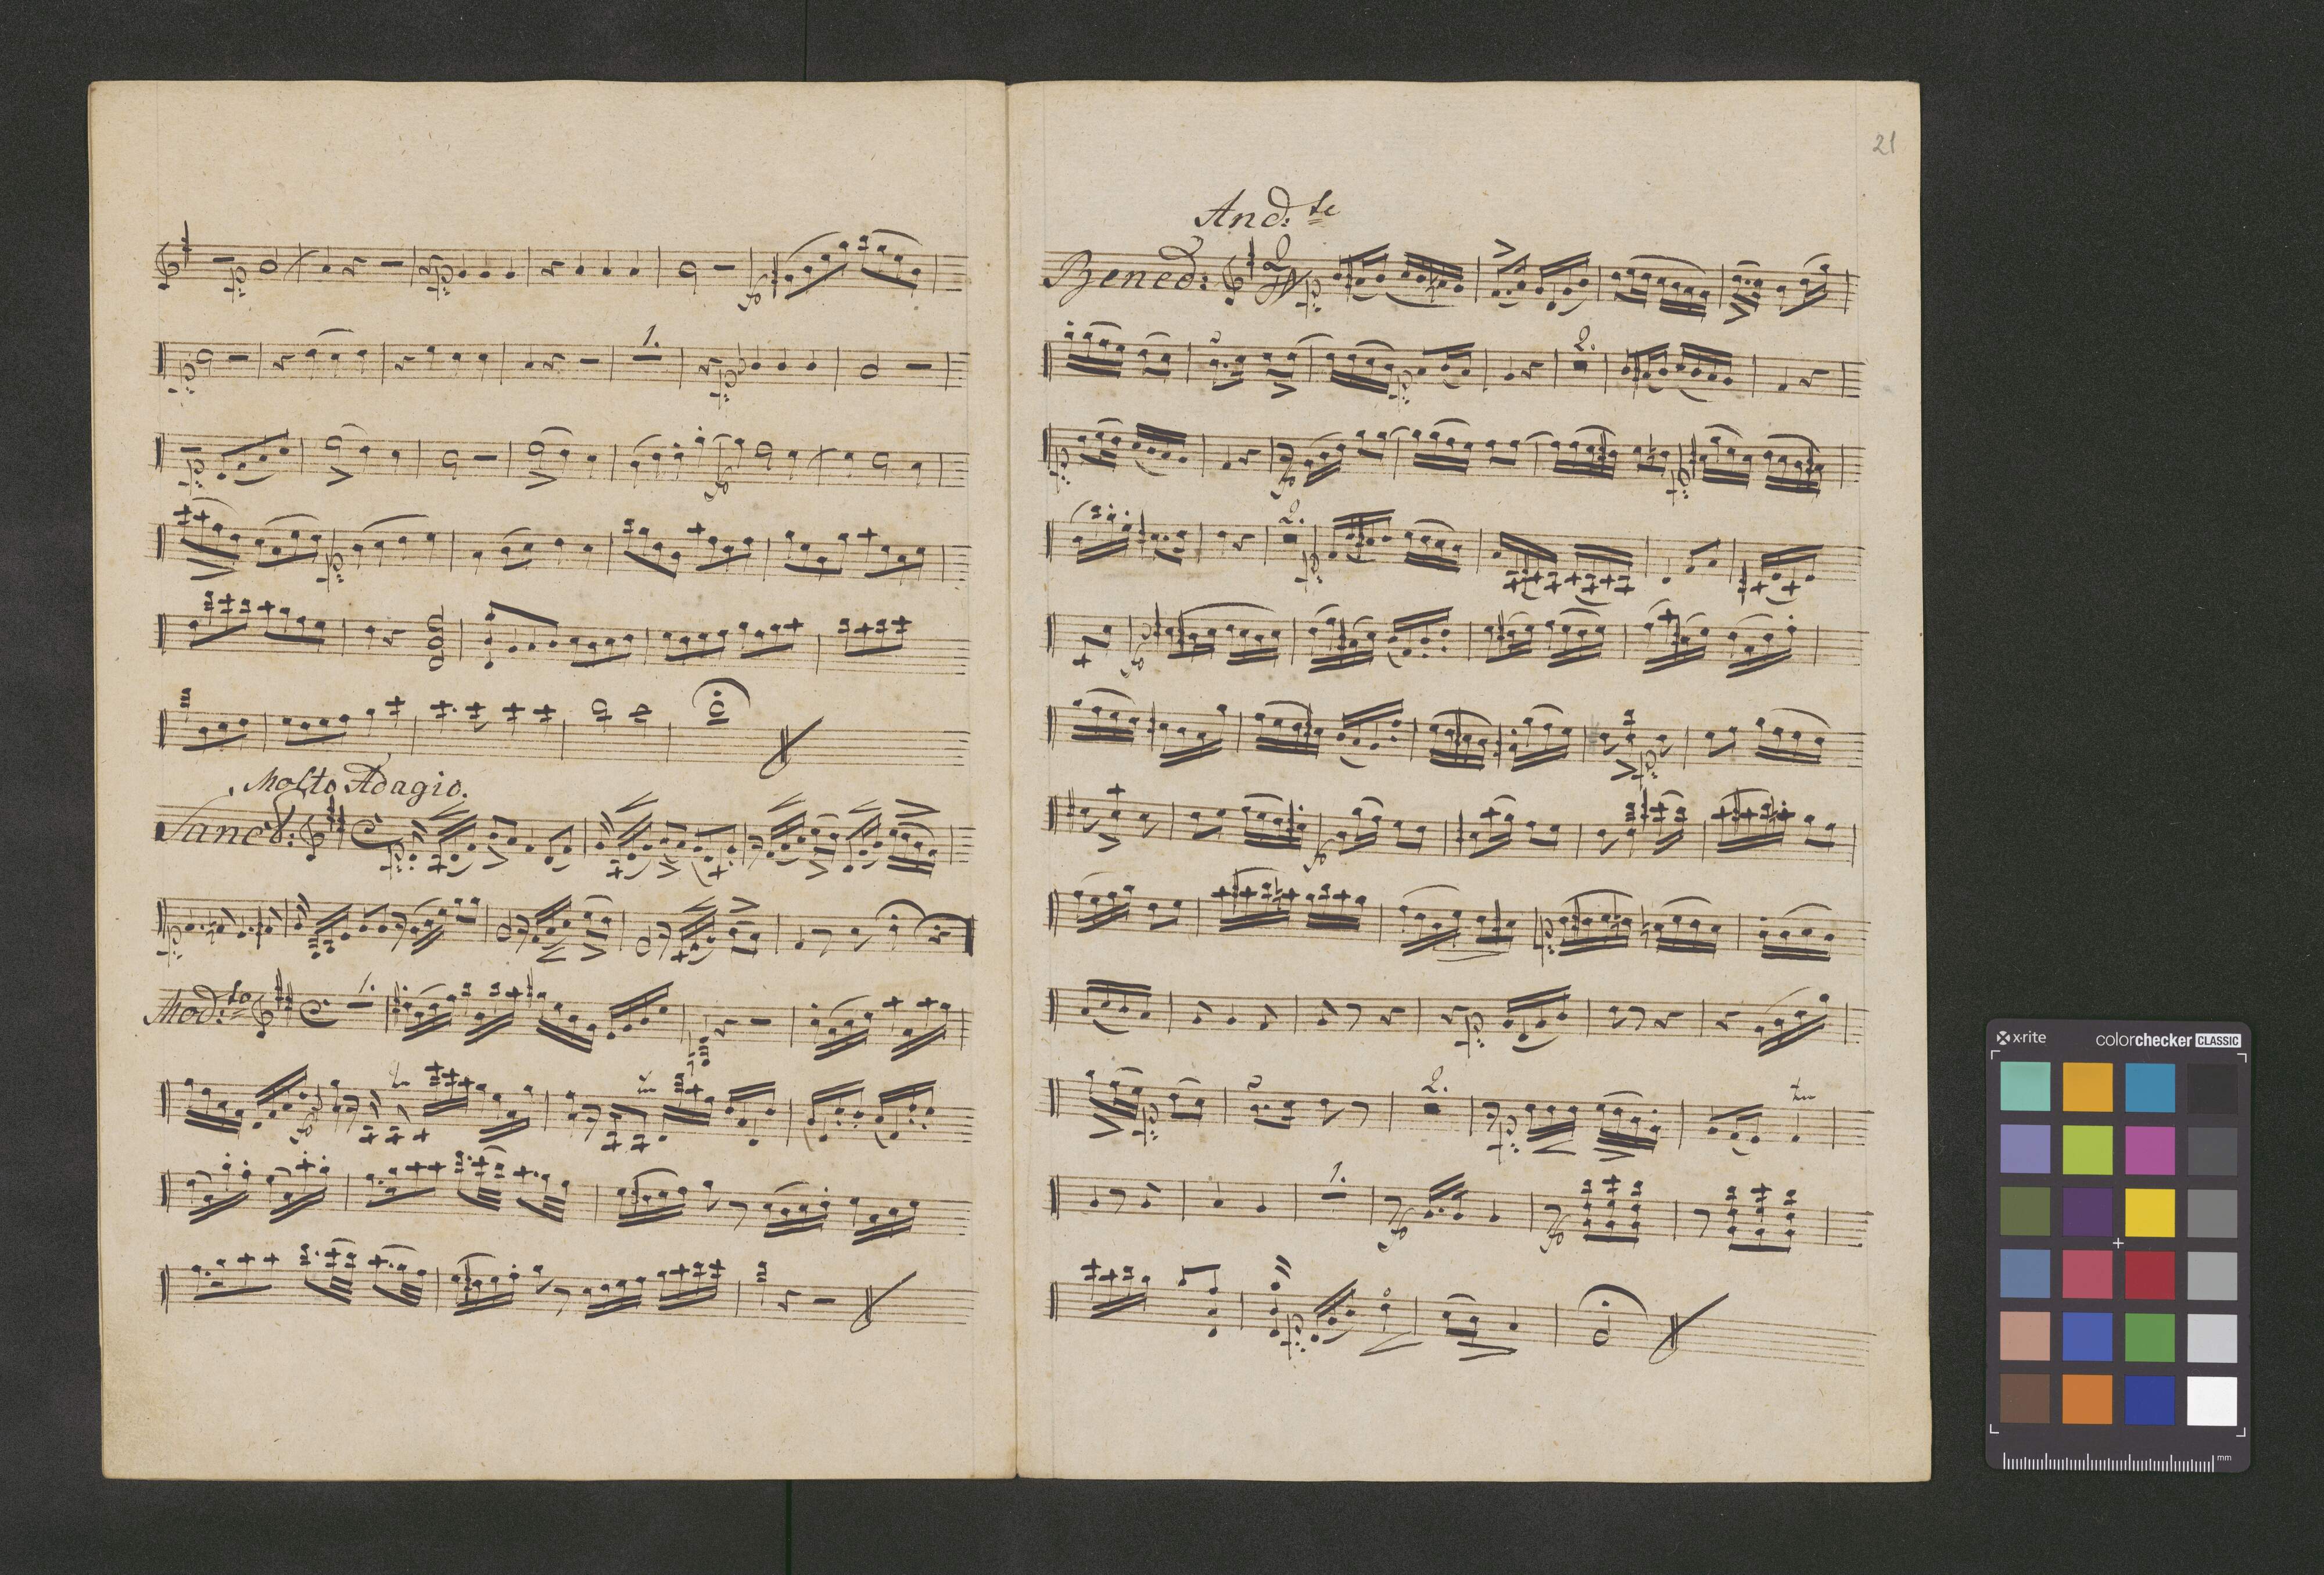 1.
Molto Adagio.
Sanct:
Mod:to
1.
tr
tr
21
And:te
Bened:
2.
2.
2.
tr
1.
x-rite
colorchecker CLASSIC
mm